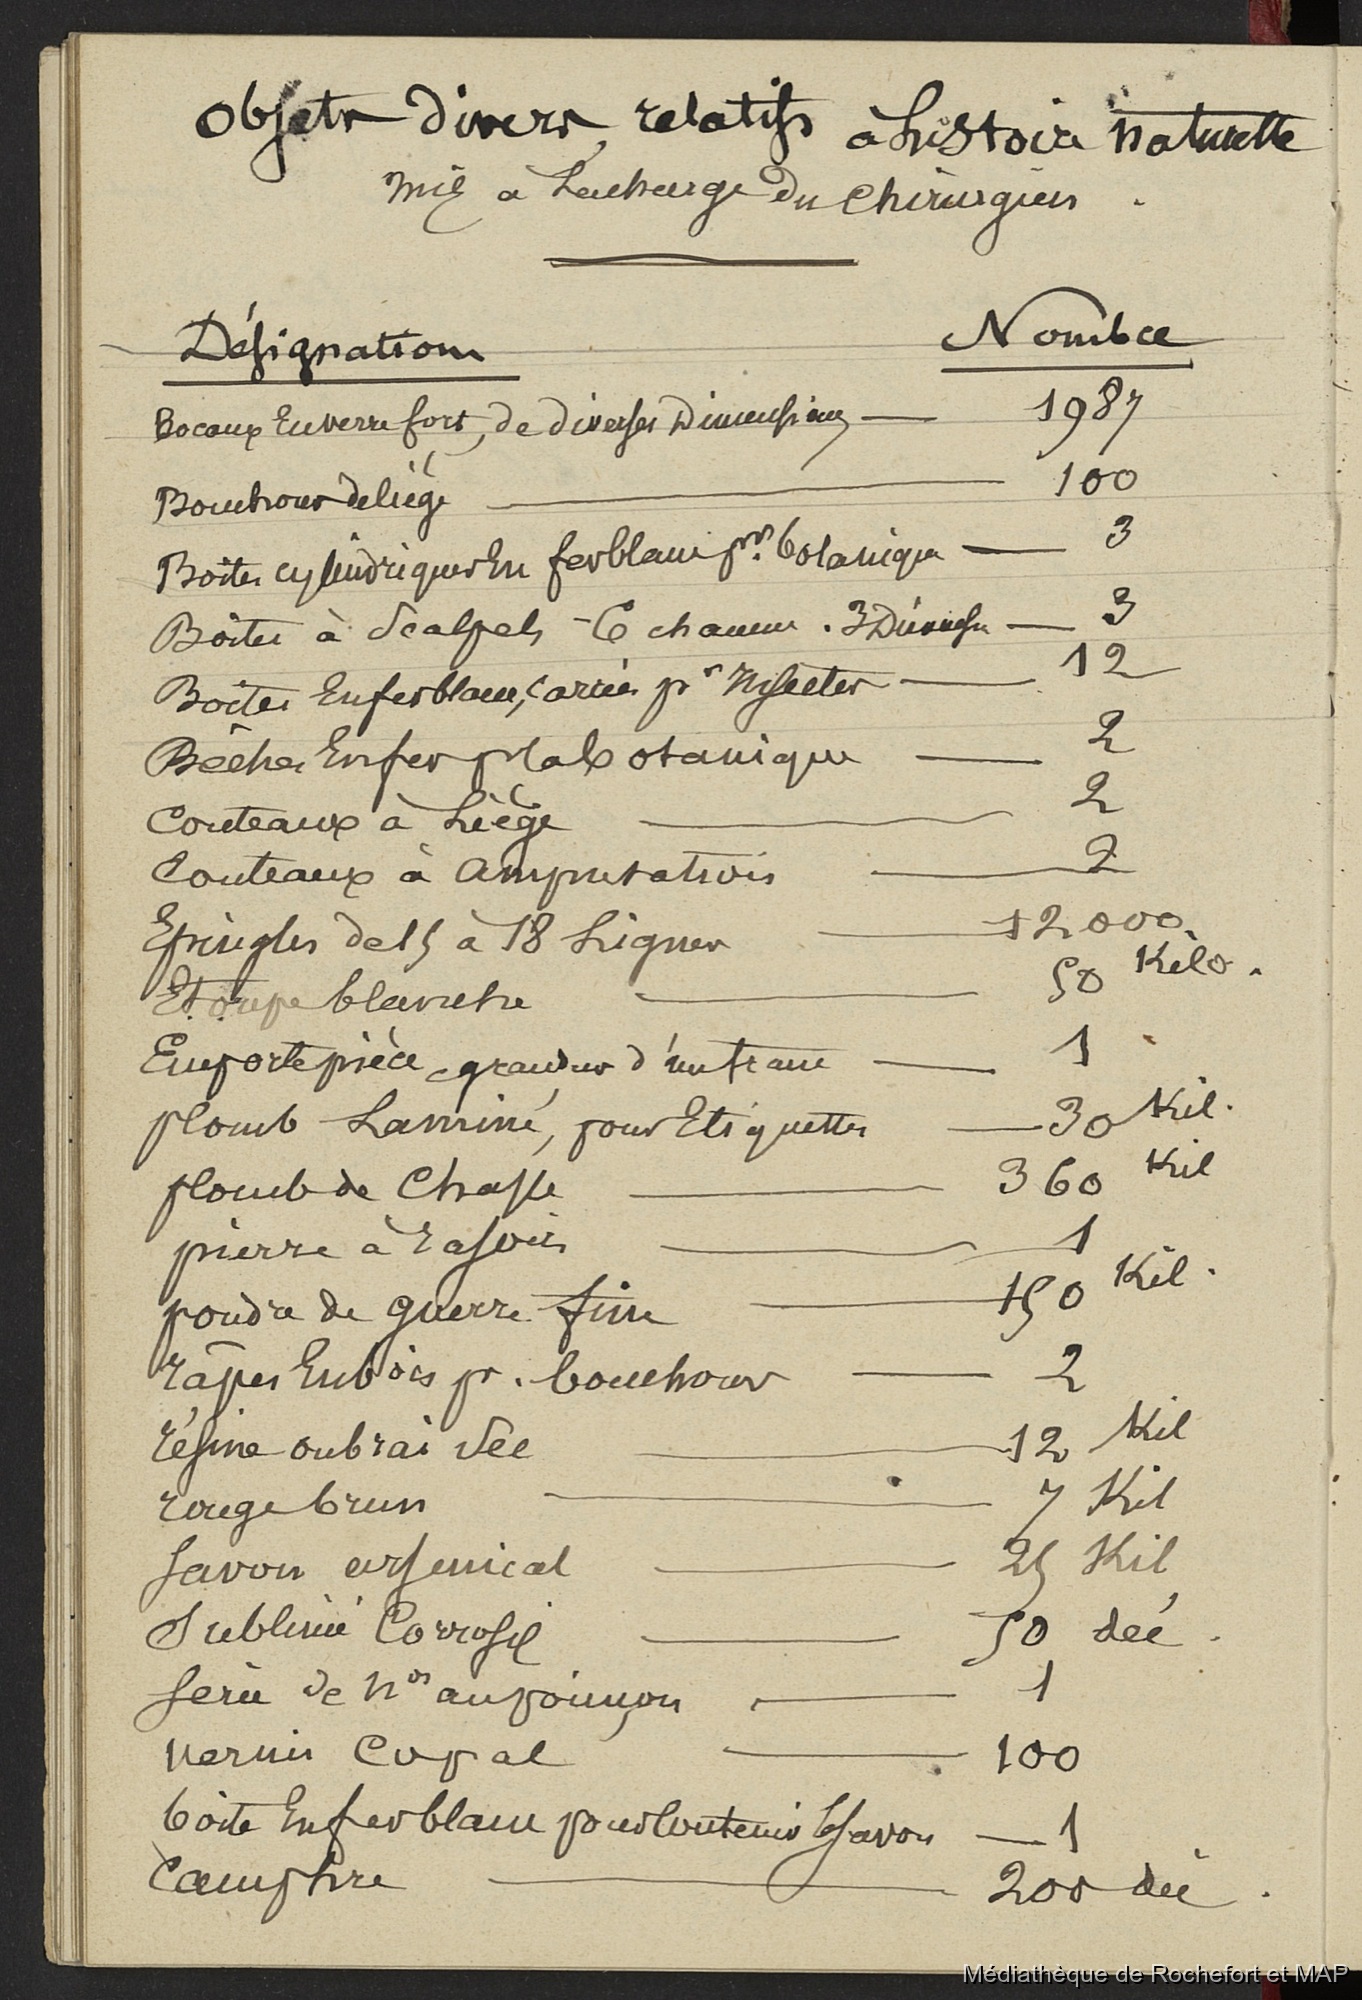 Objets divers relatifs à Lhistoire naturelle
Mis à Lacharge du Chirurgien .
Désignation Nombre
Bocaux En verre fort, de diverses Dimensions — 1987
Bouchons de liége — 100
Boites cylindriques En ferblanc pr. botanique — 3
Boites à Scalpels - 6 chacune . 3 — 3
Boites En ferblanc, carrées pr Insectes — 12
Bêches En fer pr la botanique — 2
Couteaux à Liége — 2
Couteaux à amputation — 2
Epingles de 15 à 18 Lignes — 12000.
Etoupe blanche — 50 Kilo.
Emporte pièce grandeur d'un franc — 1
plomb Laminé, pour Etiquettes — 30 Kil.
plomb de Chasse — 360 Kil
pierre à rasoir — 1
poudre de guerre fine — 150 Kil.
râpes En bois pr. bouchons — 2
résine ou brai sec — 12 Kil
rouge brun — 7 Kil
Savon arsenical — 25 Kil
Sublimé Corrosif — 50 déc.
Série de Nos au poinçon — 1
vernis Copal — 100
boite En ferblanc pour Contenir le Savon — 1
Camphre — 200 déc.
Médiathèque de Rochefort et MAP